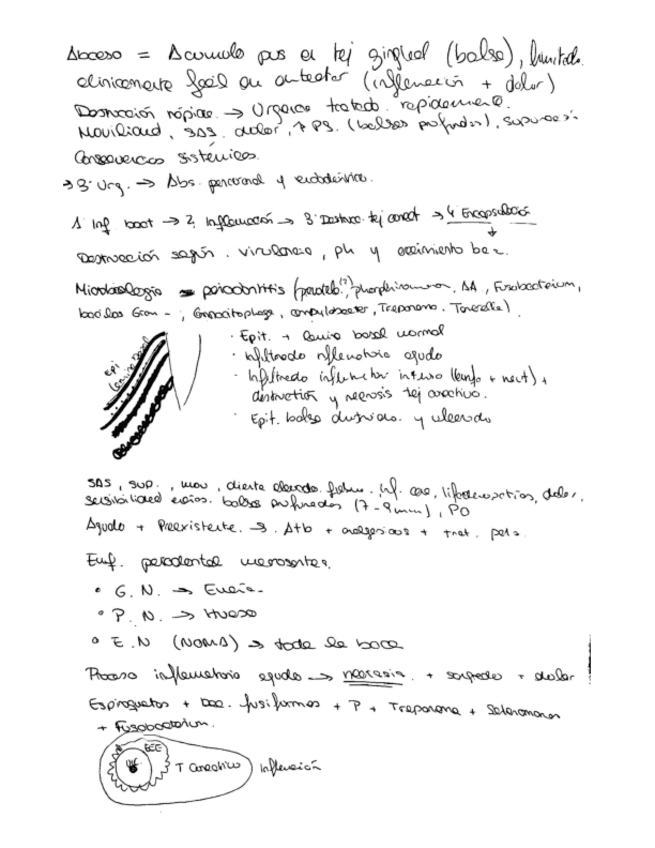 Absceso = Acumulo pus en tej gingival (bolsa), limitado.
clinicamente facil au detectar (inflamación + dolor)
Destrucción rápida. → Urgencia tratado. rapidamente.
Movilidad, SAS. dolor, ↑ PS. (bolsas profundas), supuración
Consecuencias sistémicas.
→ 3ª Urg. → Abs. periconal y endodóntico.
1 Inf bact → 2. Inflamación → 3 Destrucc. tej conect → 4 Encapsulació
Destrucción según. virulencia, ph y crecimiento bac.
Microbiologia periodontitis (porphiromona, AA, Fusobacterium,
bacilos Gram - ; Capnocitophaga, campylobacter, Treponema. Tanerella).
Epi
Lamina basal
· Epit. + lamina basal normal
· Infiltrado inflamatorio agudo
· Infiltrado inflamator intenso (linfo + neut) +
destrucción y necrosis tej conectivo.
· Epit. bolsa destruido. y ulcerado
SAS, sup., mov, diente elevado. fiebre. inf. linfadenopatias, dolor,
sensibilidad bolsas profundas (7-9mm), PO
Agudo + Preexistente. → Atb + analgesicos + trat. peri
Enf. periodontal necrosante.
• G.N. → Encía.
• P.N. → Hueso
• E.N (NOMA) → toda la boca
Proceso inflamatorio agudo → necrosis. + sangrado + dolor
Espiroquetas + bac. fusiformes + P + Treponema + Selenomonas
+ Fusobacterium.
T Conectivo
Inflamación